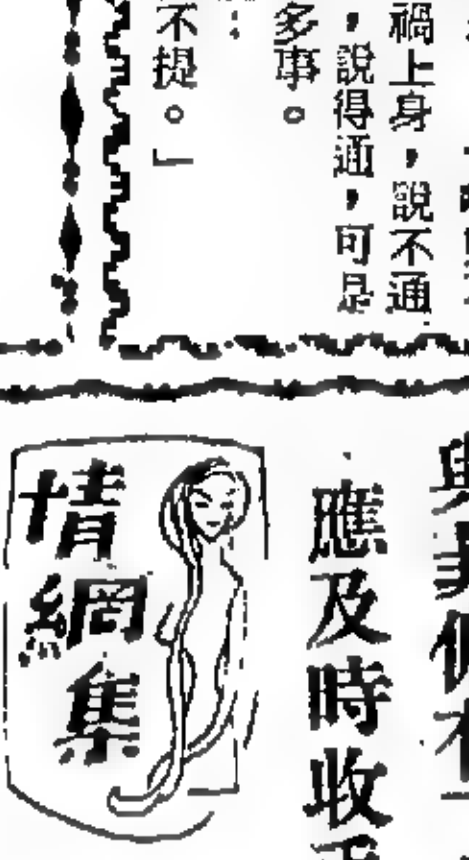 禍上身，說不通
，說得通，可是
多事。
：
不提。」
應及時收
情網集